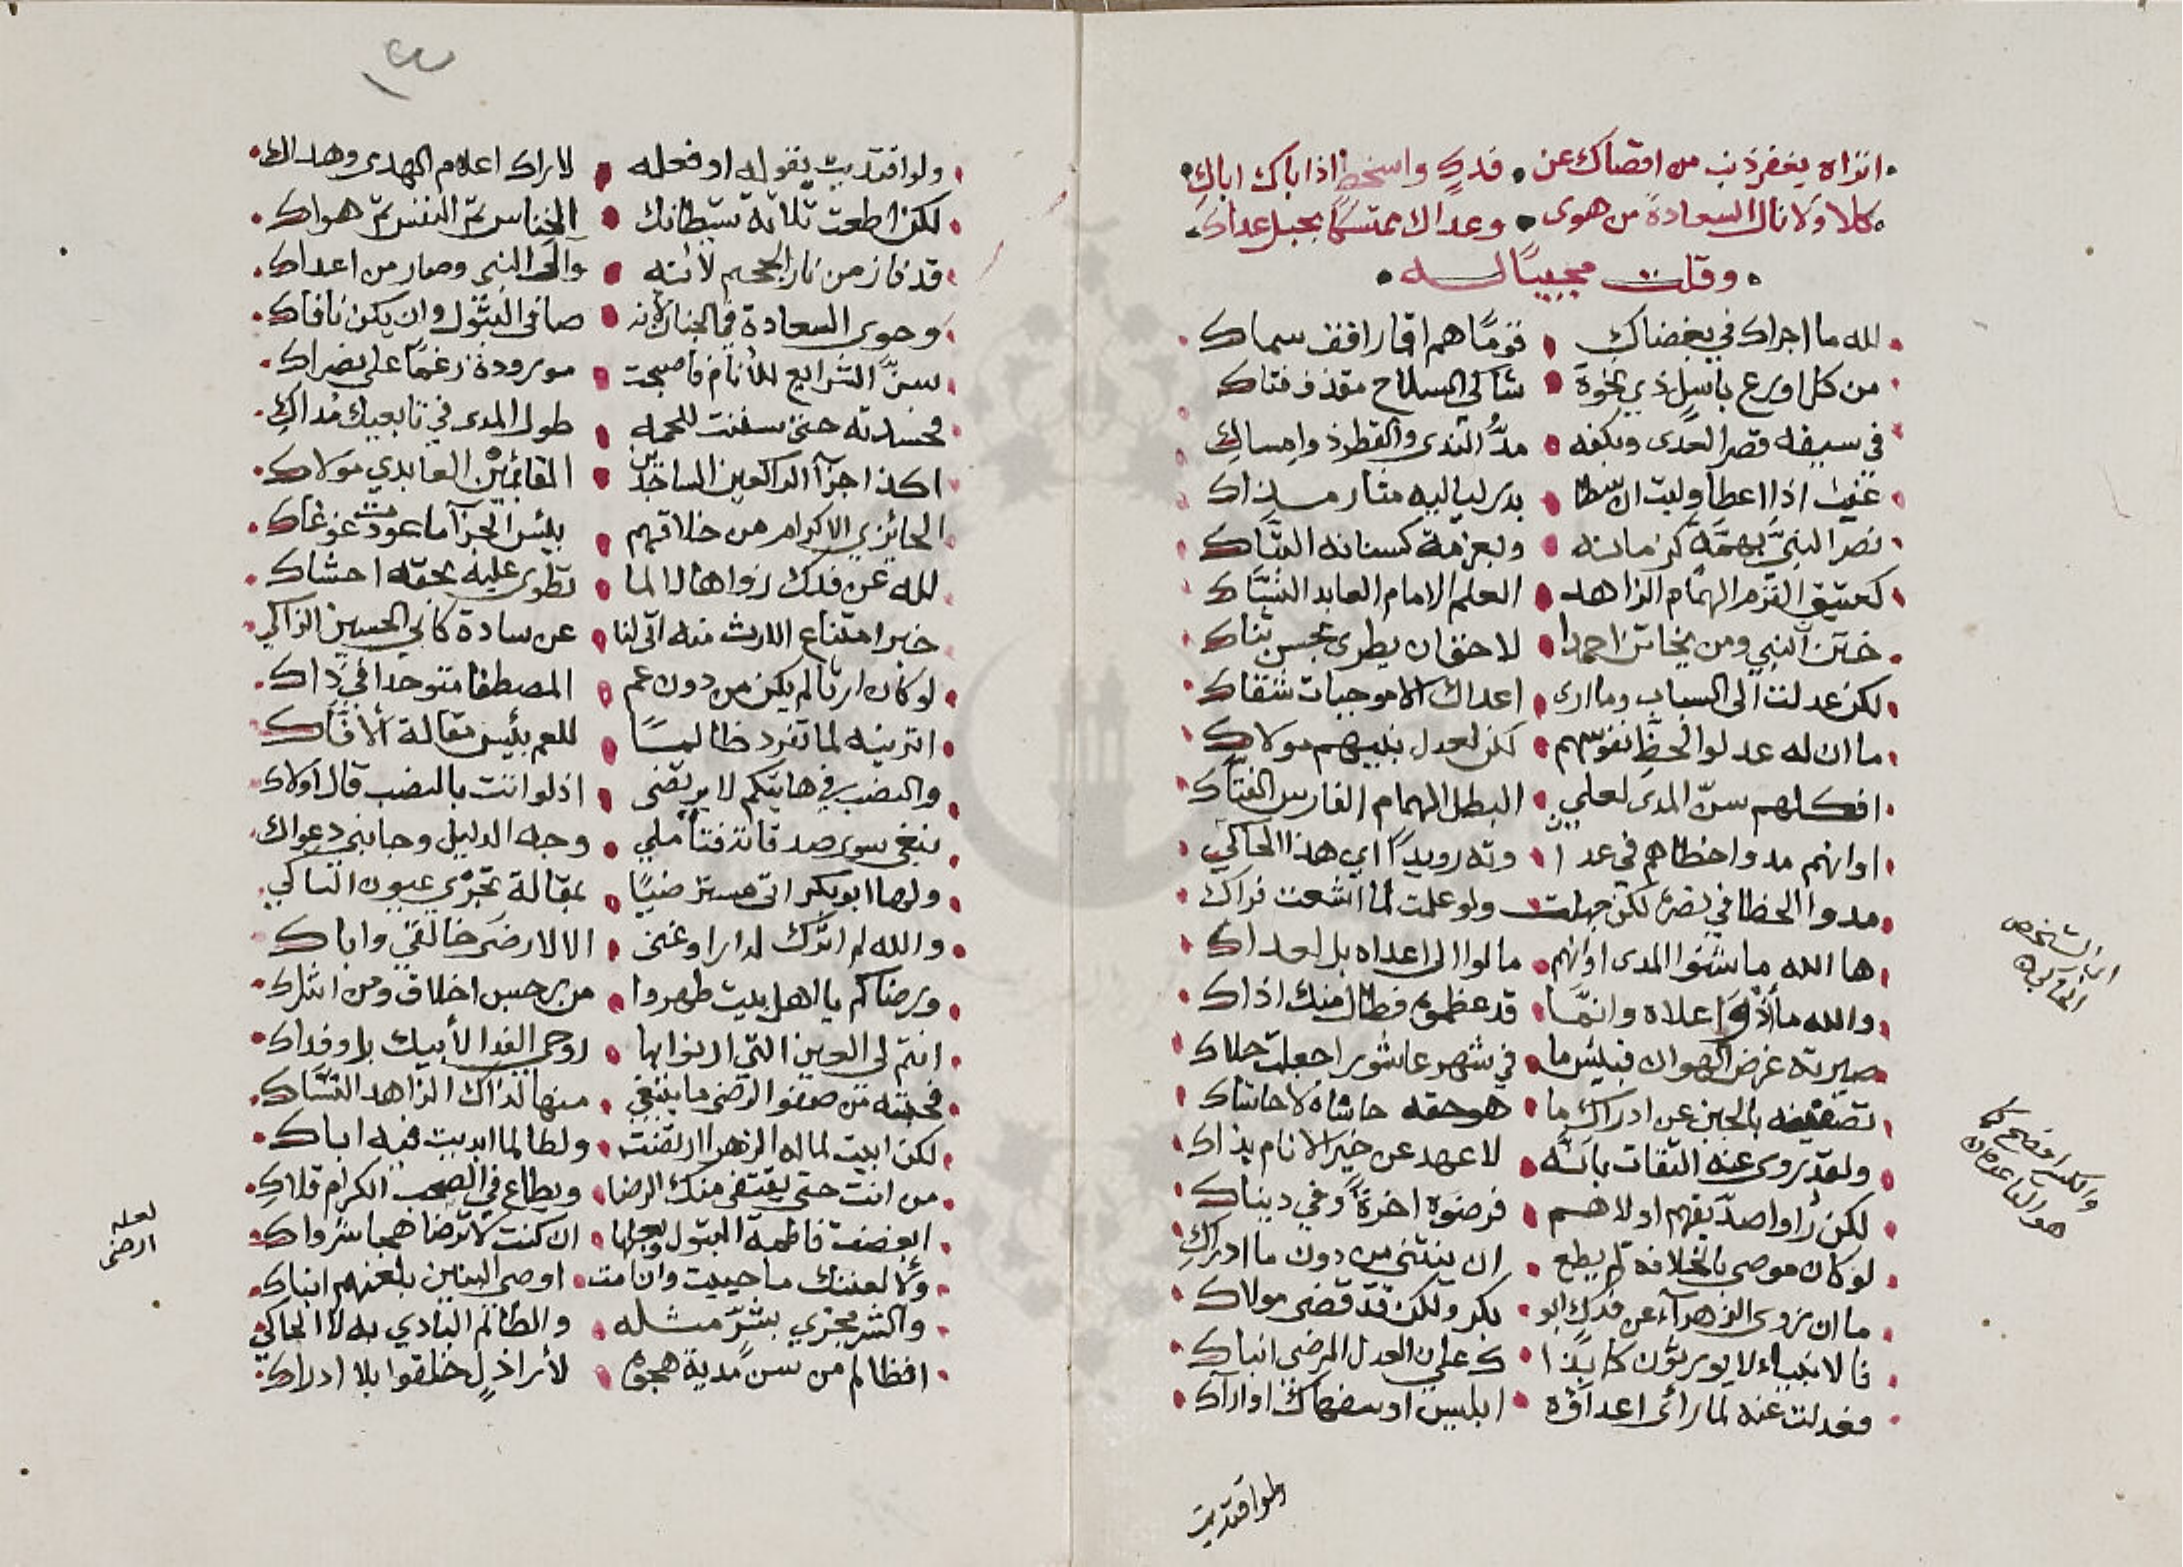 اتراه يغفر ذنب من اقصاك عن فدك واسخط اذاباك اباك
كلا ولا نال السعادة من هوى وعداك متمسكا بحبل عداك
وقلت مجيبًا له
لله ما اجراك في بغضاك قومًا هم اقمار افق سماك
من كل اورع باسل ذي نخوة شاكي السلاح مقذف فتاك
في سيفه قصر العدى وبكفه مدّ الندى والقطر ذو امساك
غيث اذا اعطا وليث ان سطا بدر لياليه
نصر النبيّ بهمّة وبعزمة كسنانه البتّاك
كعتيق القرم الهمام الزاهد العلم الامام العابد النسّاك
ختن النبي ومن يخاتن احمدا لا حق ان يطرى بحسن ثناك
لكن عدلت الى السباب وما ارى اعداك الا موجبات شقاك
ما ان له عدلوا لحظّ نفوسهم لكن لعدل نبيهم مولاك
افكلهم سنّ المدى لعلي البطل الهمام الفارس الفتّاك
او انهم مدوا خطاهم في عدا وته رويدًا اي هذا الحاكي
مدوا الخطا في نصره لكن جهلت ولو علمت لما اشعت فراك
ها الله ما شنوا المدى او انهم مالوا الى اعداه بل لعداك
والله ما اعلاه وانمّا قد عظموه فطال منك اذاك
صيرته غرض الهوان فبئس ما في شهر عاشورا جعلت حلاك
بالجبن عن ادراك ما هو حقه حاشاه لا حاشاك
ولقد روى عنه الثقات بانه لا عهد عن خير الانام بذاك
لكن رأوا صدّيقهم اولاهم فرضوه اخرة وفي دنياك
لو كان موصى بالخلافة لم يطع ان ينثني من دون ما ادراك
ما ان زوى الزهرآء عن فدك ابو بكر ولكن قد قضى مولاك
فالانبياء لا يورثون كما بذا ك علي العدل المرضي انباك
فعدلت عنه لما رأى اعداؤه ابليس او سفهاك او اراك
اي الشخص الحاكي
ولو اقتديت
ولو اقتديت بقوله او فعله لاراك اعلام الهدى وهداك
لكن اطعت ثلاثة شيطانك الخناس ثم النفس ثم هواك
قد فاز من نار الجحيم لانه والى النبي وصار من اعداك
وحوى السعادة في الجنان لانه صافى البتول وان يكن نافاك
سنّ الشرايع للأنام فاصبحت مورودة رغمًا على نضراك
فحسدته حتى سننت للحمه طول المدى في تابعيك مُداك
اكذا جزآ الراكعين الساجدين القائمين العابدي مولاك
الحائزي الاكرام من خلاقهم بئس الجزآ ما عودت غوغاك
لله عن فدك زواها لا لما تطوى عليه بحقه احشاك
خبر امتناع الارث منه اتى لنا عن سادة كابي الحسين الزاكي
لو كان ارثا لم يكن من دون عم المصطفا متوحدا في ذاك
اترينه لما تفرد ظالمًا للعم بئس مقالة الافّاك
والنصب في هاتيكم لا يرتضى اذلو انت بالنصب قال اولاك
نبغي سوى صدقاته فتأملي وجه الدليل وجانبي دعواك
ولها ابو بكر اتى مسترضيًا بمقالة تجري عيون الباكي
والله لم اترك لدارا وغنى الا لارضى خالقي واباك
ورضاكم يا اهل بيت طهروا من رجس اخلاق ومن اشراك
انتم لي العين التي ارنوا بها روحي الفدا لأبيك بل وفداك
فحبته من صفو الرضى ما ينبغي منها لذاك الزاهد النسّاك
لكن ابيت لما له الزهرا ارتضت ولطالما ابديت فيه اباك
من انت حتى يقتفى منك الرضا ويطاع في الصحب الكرام قلاك
ابغضت فاطمة البتول وبعلها ان كنت لا ترضا هما شرواك
ولألعننك ما حييت وان امت اوصي البنين بلعنهم ابناك
والشر مجزي بشرّ مثله والظالم البادي به لا الحاكي
افظالم من سن مدية هجوه لأراذل خلقوا بلا ادراك
لعله الرضى